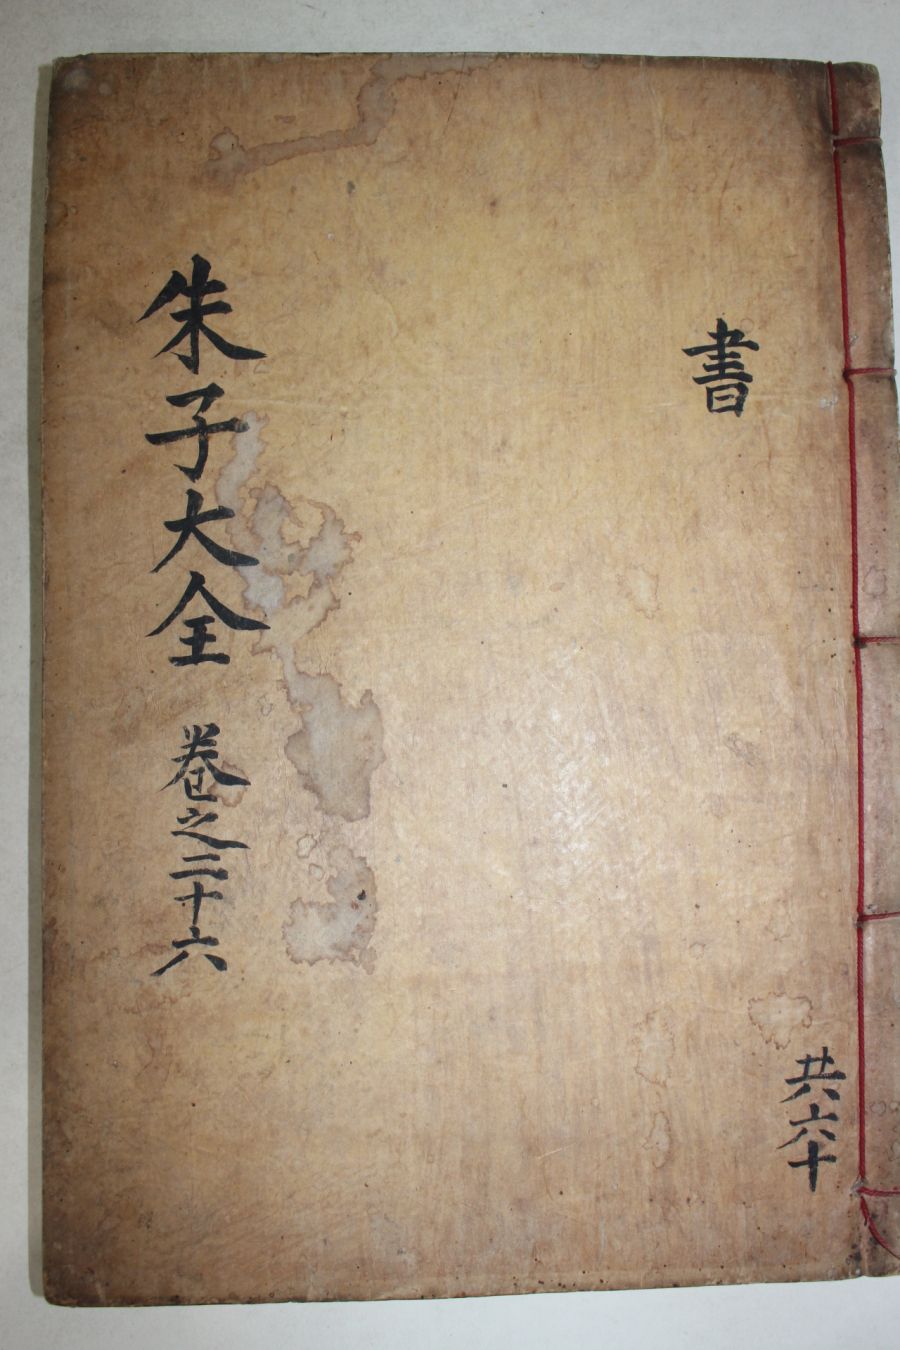 書
共六十
朱子大全 卷之二十六